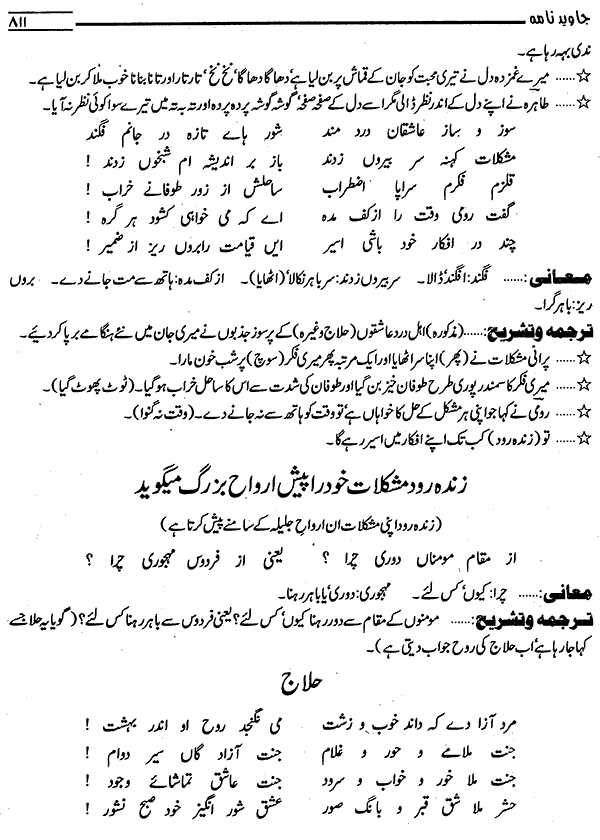 جاوید نامہ ۸۱۱
ندی بہہ رہا ہے۔
☆...... میرے غمزدہ دل نے تیری محبت کو جان کے قماش پر بن لیا ہے، دھاگا دھاگا، نخ نخ، تار تار اور تانا بنانا خوب ملا کر بن لیا ہے۔
☆...... طاہرہ نے اپنے دل کے اندر نظر ڈالی مگر اسے دل کے صفحہ صفحہ، گوشہ گوشہ، پردہ پردہ اور تہ بہ تہ میں تیرے سوا کوئی نظر نہ آیا۔
سوز و ساز عاشقان درد مند شور ہاے تازہ در جانم فگند
مشکلات کہنہ سر بیروں زدند باز بر اندیشہ ام شبخوں زدند !
قلزم فکرم سراپا اضطراب ساحلش از زور طوفانے خراب !
گفت رومی وقت را از کف مدہ اے کہ می خواہی کشود ہر گرہ !
چند در افکار خود باشی اسیر ایں قیامت را بروں ریز از ضمیر !
معانی:...... فگند: افگند، ڈالا۔ سر بیروں زدند: سر باہر نکالا، (اٹھایا)۔ از کف مدہ: ہاتھ سے مت جانے دے۔ بروں
ریز: باہر گرا۔
ترجمہ وتشریح:...... (مذکورہ) اہل درد عاشقوں (حلاج وغیرہ) کے پرسوز جذبوں نے میری جان میں نئے ہنگامے برپا کر دیئے۔
☆...... پرانی مشکلات نے (پھر) اپنا سر اٹھایا اور ایک مرتبہ پھر میری فکر (سوچ) پر شب خون مارا۔
☆...... میری فکر کا سمندر پوری طرح طوفان خیز بن گیا اور طوفان کی شدت سے اس کا ساحل خراب ہو گیا۔ (ٹوٹ پھوٹ گیا)۔
☆...... رومی نے کہا جو اپنی ہر مشکل کے حل کا خواہاں ہے، تو وقت کو ہاتھ سے نہ جانے دے۔ (وقت نہ گنوا)۔
☆...... تو (زندہ رود) کب تک اپنے افکار میں اسیر رہے گا۔
زندہ رود مشکلات خود را پیش ارواح بزرگ میگوید
(زندہ رود اپنی مشکلات ان ارواح جلیلہ کے سامنے پیش کرتا ہے)
از مقام مومناں دوری چرا ؟ یعنی از فردوس مہجوری چرا ؟
معانی:...... چرا: کیوں، کس لئے۔ مہجوری: دوری، یا باہر رہنا۔
ترجمہ وتشریح:...... مومنوں کے مقام سے دور رہنا کیوں، کس لئے؟ یعنی فردوس سے باہر رہنا کس لئے؟ (گویا یہ حلاج سے
کہا جا رہا ہے، اب حلاج کی روح جواب دیتی ہے)۔
حلاج
مرد آزادے کہ داند خوب و زشت می نگنجد روح او اندر بہشت !
جنت ملا مے و حور و غلام جنت آزادگاں سیر دوام !
جنت ملا خور و خواب و سرود جنت عاشق تماشائے وجود !
حشر ملا شق قبر و بانگ صور عشق شور انگیز خود صبح نشور !